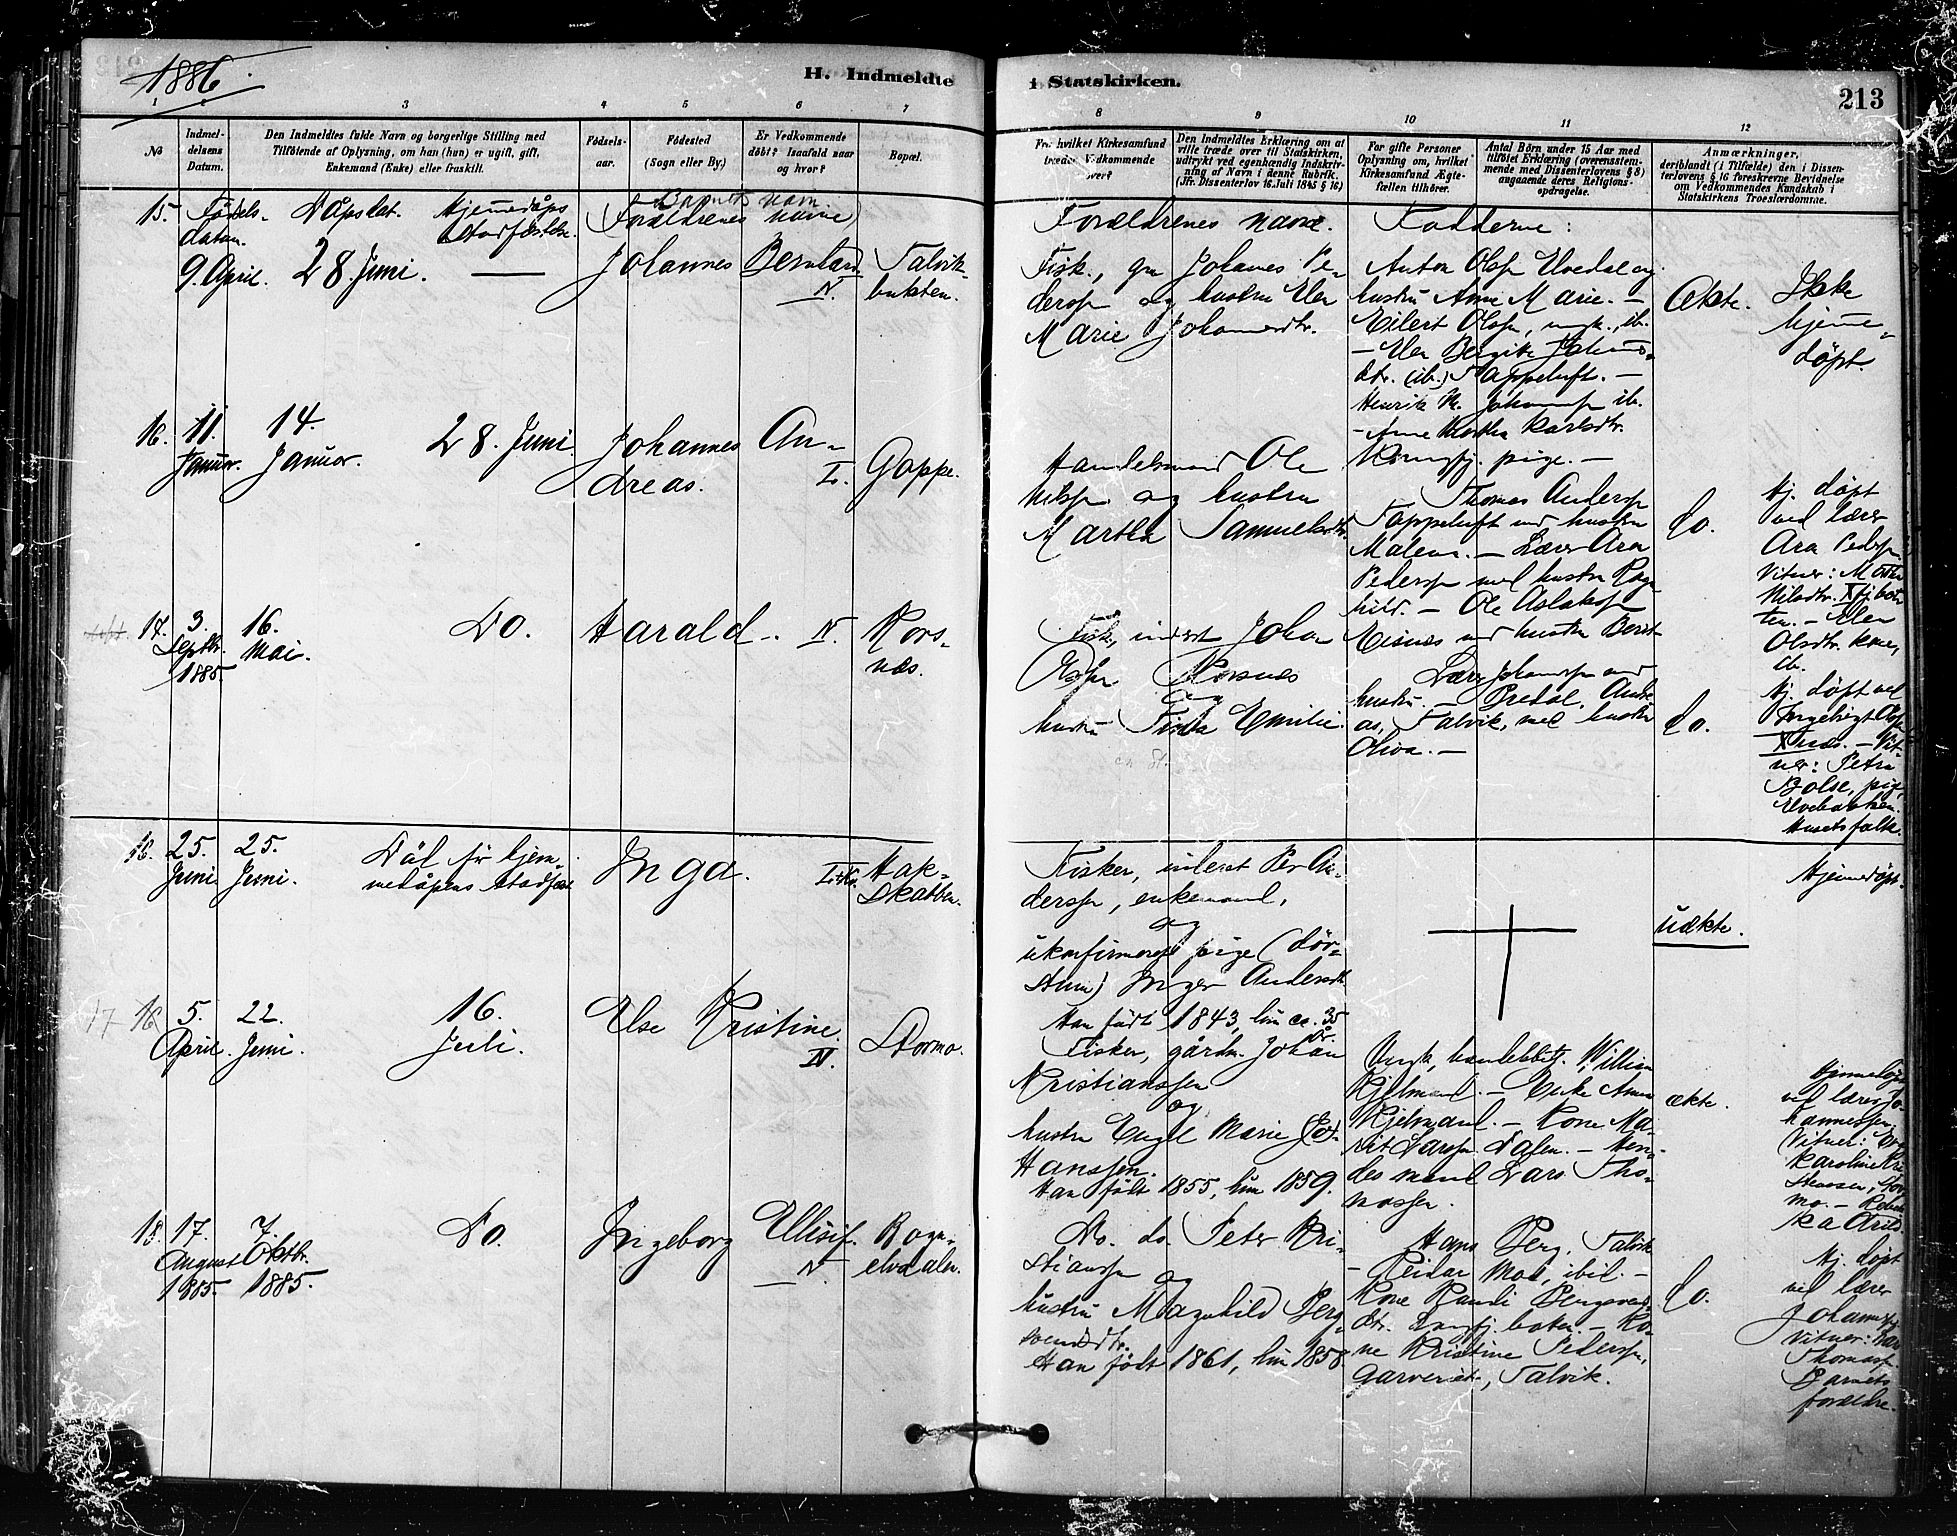 1886
H. Indmeldte
i Statskirken.
213
1
2
3
4
5
6
7
8
9
10
11
12
No
Indmel-
delsens
Datum.
Den Indmeldtes fulde Navn og borgerlige Stilling med
Tilføiende af Oplysning, om han (hun) er ugift, gift,
Enkemand (Enke) eller fraskilt.
Fødsels-
aar.
Fødested
(Sogn eller By.)
Er Vedkommende
døbt? Isaafald naar
og hvor?
Bopæl.
Fra hvilket Kirkesamfund
træder Vedkommende
over?
Den Indmeldtes Erklæring om at
ville træde over til Statskirken,
udtrykt ved egenhændig Indskriv-
ning af Navn i denne Rubrik.
(Jfr. Dissenterlov 16. Juli 1845 § 16)
For gifte Personer
Oplysning om, hvilket
Kirkesamfund Ægte-
fællen tilhører.
Antal Børn under 15 Aar med
tilføiet Erklæring (overensstem-
mende med Dissenterlovens § 8)
angaaende deres Religions-
opdragelse.
Anmærkninger,
deriblandt (i Tilfælde) den i Dissen-
terlovens § 16 foreskrevne Bevidnelse
om Vedkommendes Kundskab i
Statskirkens Troeslærdomme.
15. Fødsels-
datum.
Dåpsdat.
Hjemmedåps
stadfæstelse.
Barnets navn
(Forældrenes navne)
9. April. 28 Juni. —
Johannes Bernhard
N.
Talvik-
bukten.
Forældrenes navne.
Fisk., gm Johannes Pe-
dersen og hustru Elen
Marie Johannesdtr.
Fadderne:
Anton Olsen Elvedal og
hustru Anne Marie. —
Eilert Olsen, ungk., ib.
— Elen Bergite Johans-
dtr. (ib.) Tappeluft. —
Henrik M. Johannesen ib.
— Anne Martha Karlsdtr.
pige. —
Ækte.
Ikke
hjemme-
døpt.
16. 11.
Januar.
14.
Januar.
28. Juni
Johannes An-
dreas.
L.
Goppe.
Handelsmand Ole
Nilssen og hustru
Martha Samuelsdtr.
Thomas Anderssen
Tappeluft med hustru
Malena. — Lærer Aron
Pedersen med hustru Rag-
hild. — Ole Aslaksen
Eisnes med hustru Berit
do.
Hj. døpt
ved lærer
Aron Pedersen.
Vitner: Marthe
Nilsdtr.
— Elen
Olsdtr. kone,
ib.
17. 3.
Septbr.
1885.
16.
Mai.
Do.
Harald.
N.
Kors-
nes.
Fisk, inderst Johan
Olsen Korsnes
og
hustru Emilie.
Lars Johannesen med
hustru. — Bredal, Andre-
as, Talvik, med hustru
Oliva. —
do.
Hj. døpt ved
Ingebrigt Olsen
— Vit-
ner: Petra
Bolse, pige,
Elvebakken.
Husets folk.
18. 25.
Juni
25.
Juni.
Dål før hjem-
medåpens stadfæst.
Inga.
Hak-
skabben.
Fisker, inderst Per An-
dersen, enkemand,
og
ukonfirmeret pige (døv-
stum) Inger Andersdtr.
Han født 1843, hun ca. 35
år.
uækte.
Hjemmedøpt.
17 16. 5.
April.
22.
Juni.
16.
Juli.
Else Kristine.
N.
Stormo.
Fisker, gårdm. Johan
Kristianssen
og
hustru Engel Marie Jo-
Hanssen.
Han født 1855, hun 1859.
Ungk, William
Kjelmand. — Enke Anna
Kjelmand. — Kone Ma-
rit Larsen. Dalen. — Hen-
des mand Lars Tho-
massen.
ækte.
Hjemmedøpt
ved lærer Jo-
hannessen,
Vitner:
Karoline Kri-
stensen, Stor-
mo. —
18. 17.
August
1885.
7.
Oktbr.
1885.
Do.
Ingeborg Ellisif.
N.
Rogn-
elvdalen.
Do. do. Peter Kri-
stiansen og
hustru Magnhild Berg-
svendsdtr.
Han født 1861, hun 1858
Hans Berg, Talvik
— Peidar Moe, ibid. —
Kone Randi Bergsvend-
dtr. Langfj.botn. — Ko-
ne Kristine Pedersen,
Garveriet, Talvik.
do.
Hj. døpt
ved lærer
Johannessen
Vitner: Lars
Thomassen
Barnets
forældre.